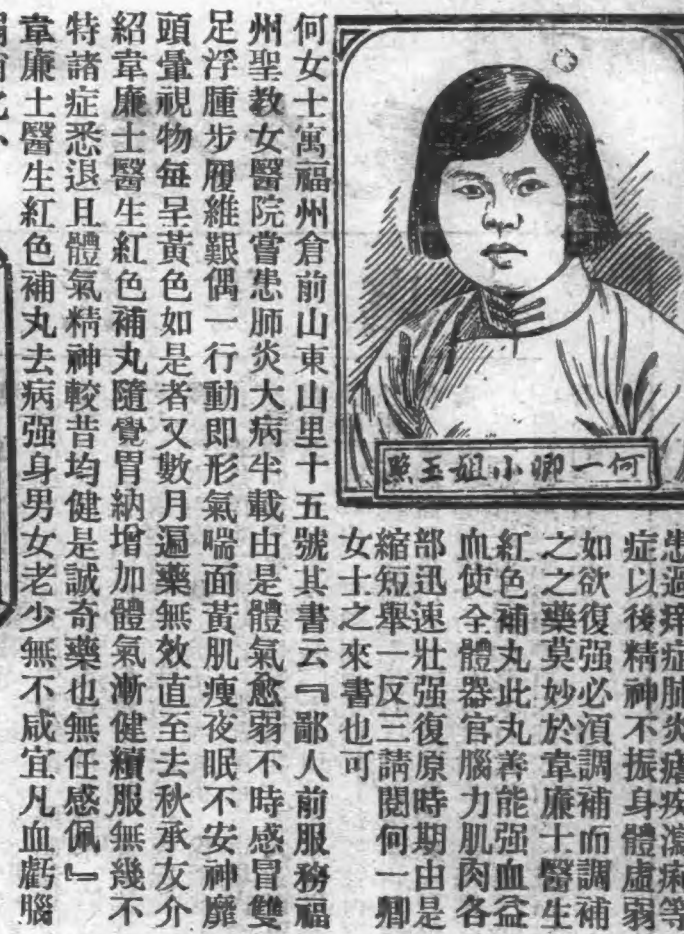 患過痒症肺炎瘧疾瀉痢等
症以後精神不振身體虛弱
如欲復强必須調補而調補
之之藥莫妙於韋廉士醫生
紅色補丸此丸善能强血益
血使全體器官腦力肌肉各
部迅速壯强復原時期由是
縮短舉一反三請閱何一卿
女士之來書也可
何一卿小姐玉照
何女士寓福州倉前山東山里十五號其書云『鄙人前服務福
州聖教女醫院嘗患肺炎大病半載由是體氣愈弱不時感冒雙
足浮腫步履維艱偶一行動即形氣喘面黃肌瘦夜眠不安神靡
頭暈視物每呈黃色如是者又數月遍藥無效直至去秋承友介
紹韋廉士醫生紅色補丸隨覺胃納增加體氣漸健續服無幾不
特諸症悉退且體氣精神較昔均健是誠奇藥也無任感佩』
韋廉士醫生紅色補丸去病强身男女老少無不咸宜凡血虧腦